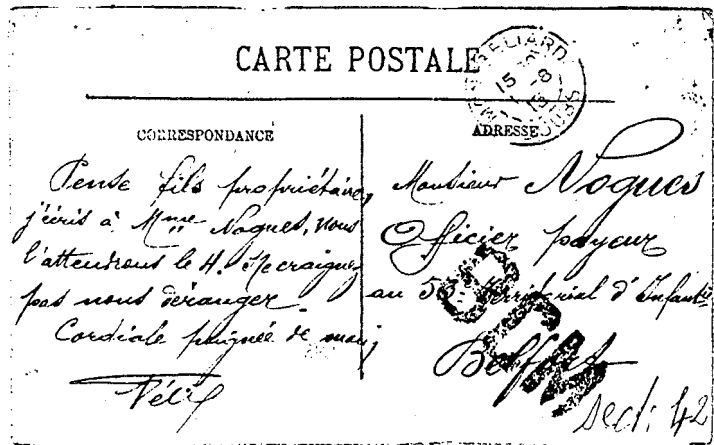 CARTE POSTALE
MONTBELIARD
15
-8
15
DOUBS
CORRESPONDANCE
Pense fils propriétaire,
j'écris à Mme Nogues, nous
l'attendrons le 4. Ne craignez
pas nous déranger.
Cordiale poignée de main
Félix
ADRESSE
Monsieur Nogues
Officier payeur
au 53 Territorial d'Infanterie
Belfort
Sect: 42